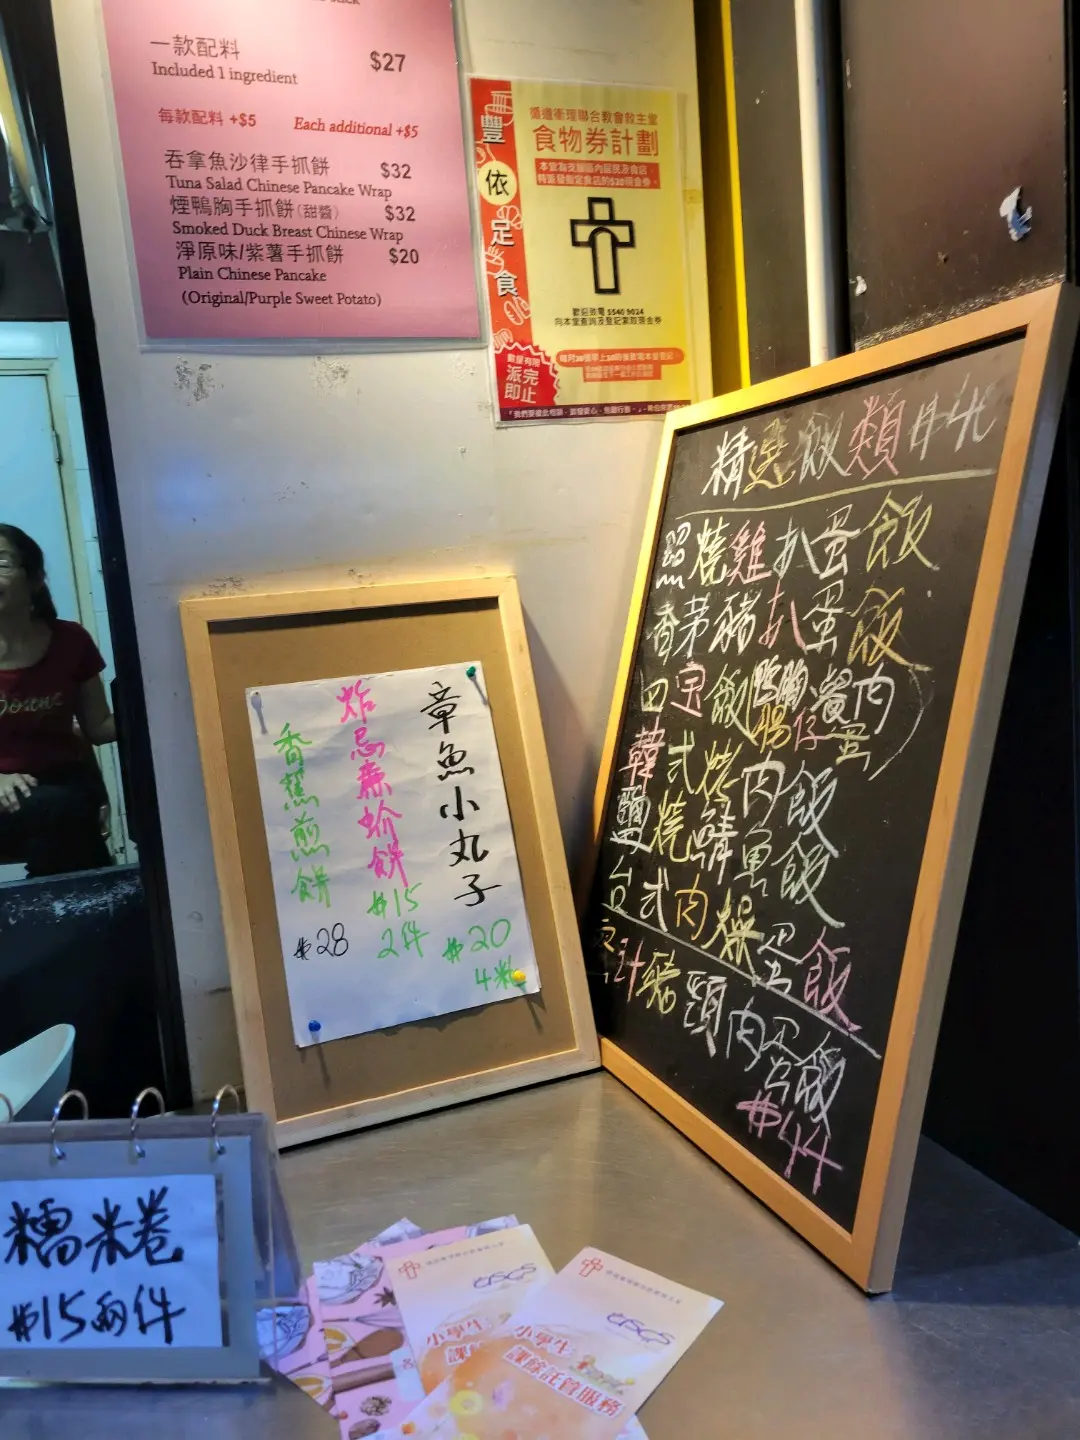 一款配料 $27
Included 1 ingredient
每款配料 +$5 Each additional +$5
吞拿魚沙律手抓餅 $32
Tuna Salad Chinese Pancake Wrap
煙鴨胸手抓餅(甜醬) $32
Smoked Duck Breast Chinese Wrap
淨原味/紫薯手抓餅 $20
Plain Chinese Pancake
(Original/Purple Sweet Potato)
豐依足食
數量有限
派完即止
循道衞理聯合教會救主堂
食物券計劃
歡迎致電 5540 9024
向本堂查詢及登記索取現金券
精選飯類
照燒雞扒蛋飯
香茅豬扒蛋飯
四宝飯(鴨胸 腸仔 餐肉 蛋)
韓式烤肉飯
鹽燒鯖魚飯
台式肉燥蛋飯
頸肉蛋飯
$44
章魚小丸子
$20
4粒
炸
餅
$15
2件
香蕉煎餅
$28
糯米卷
$15兩件
小學生
小學生
課餘託管服務